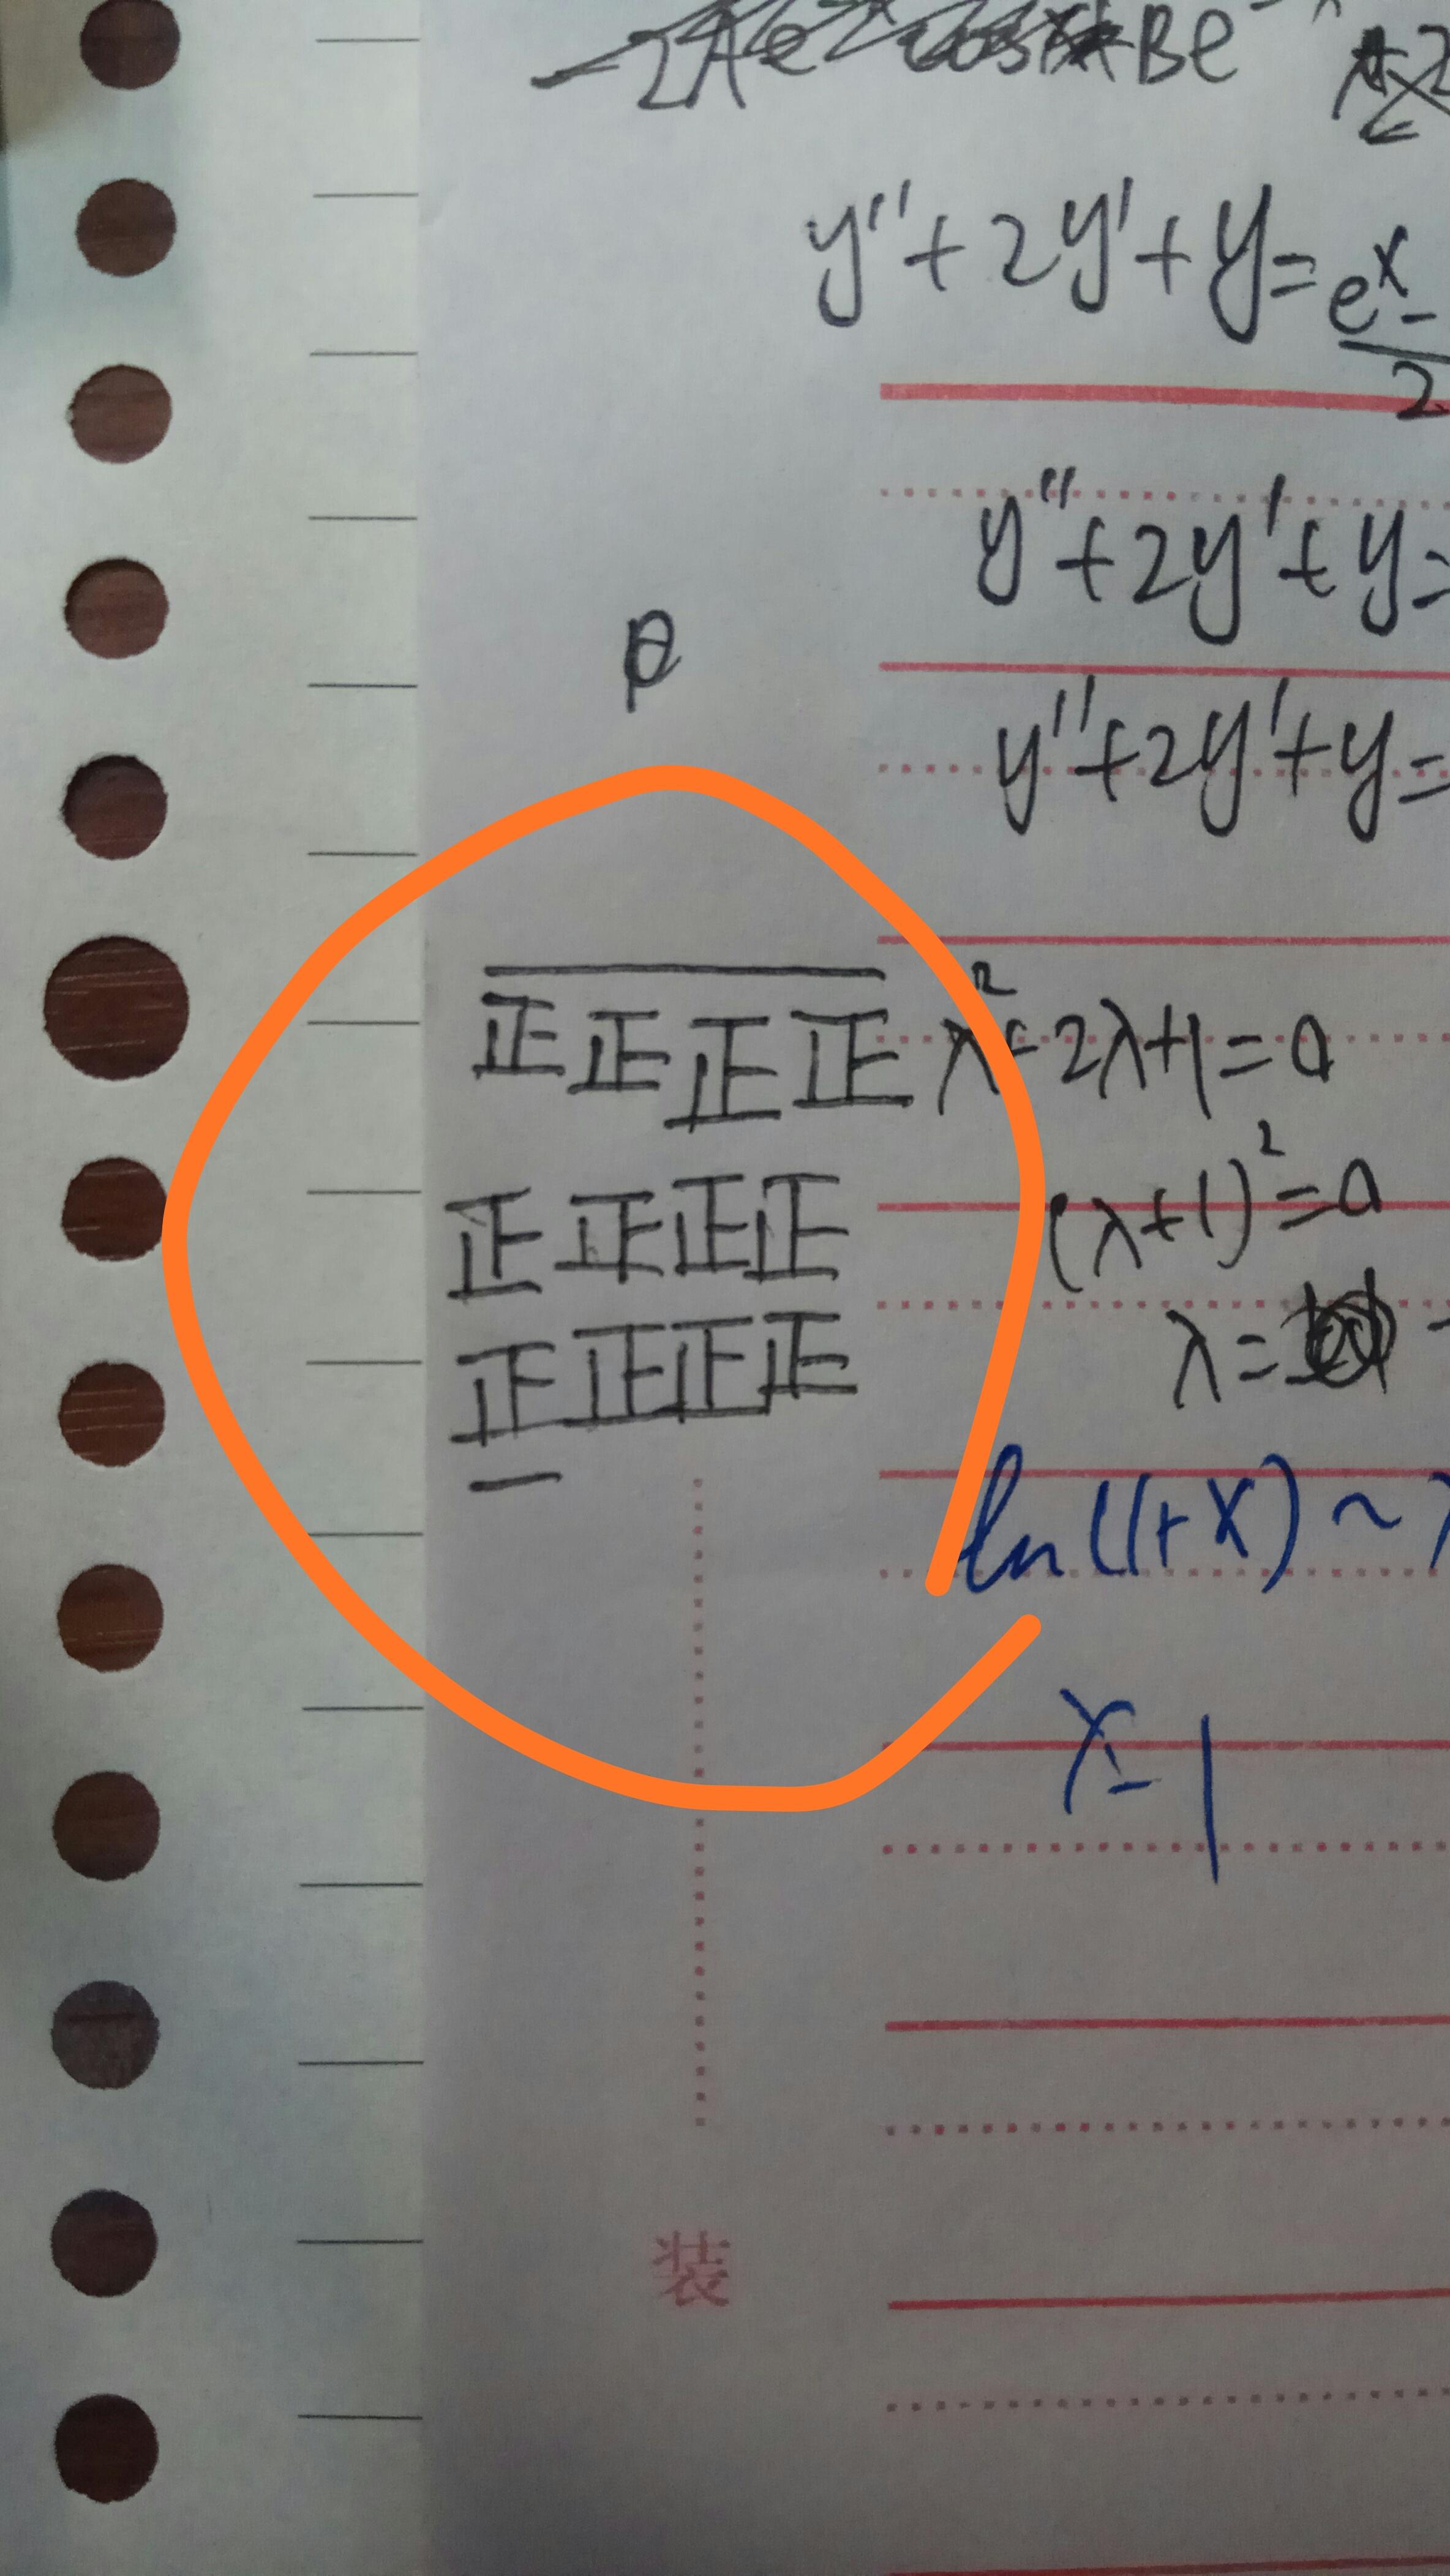 y''+2y'+y=e^x-
2
y''+2y'+y=
y''+2y'+y=
正正正正 λ²+2λ+1=0
正正正正 (λ+1)²=0
正正正正 λ=
一
ln(1+x)~
x-1
装